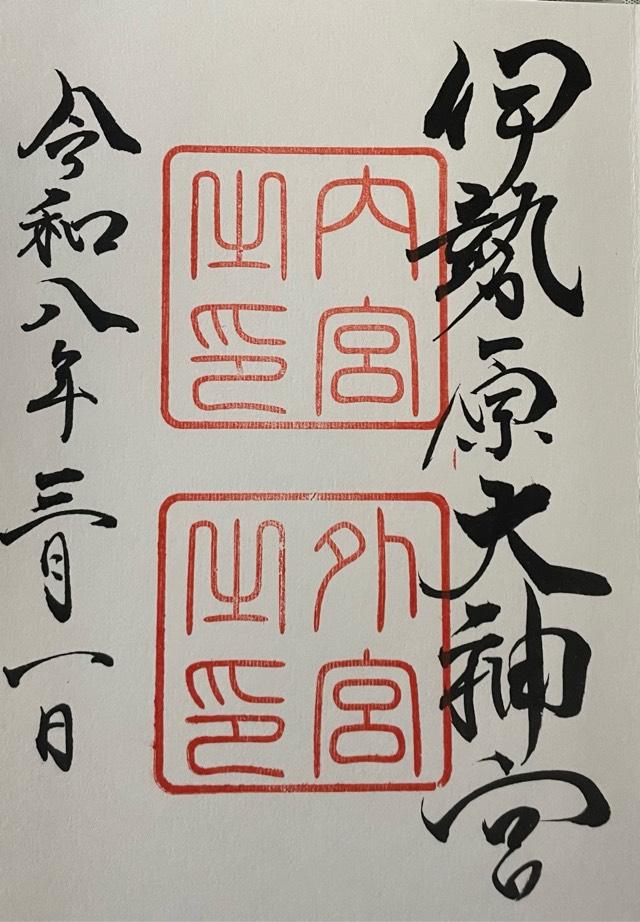 伊勢原大神宮
内宮
之印
外宮
之印
令和八年三月一日